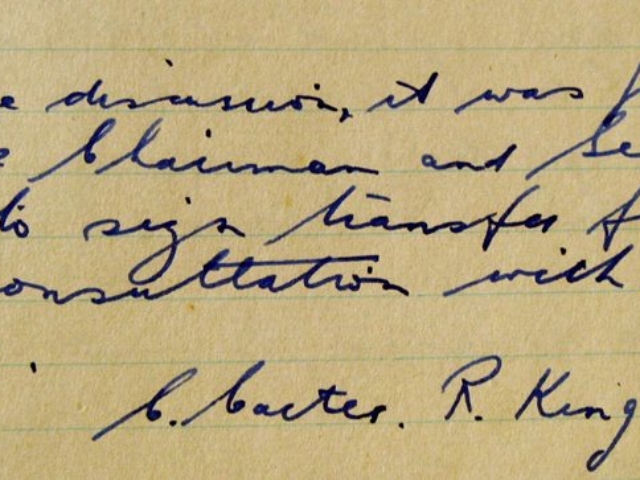 discussion, it was
Chairman and Se
to sign transfer f
onsultation with
C. Carter. R. King